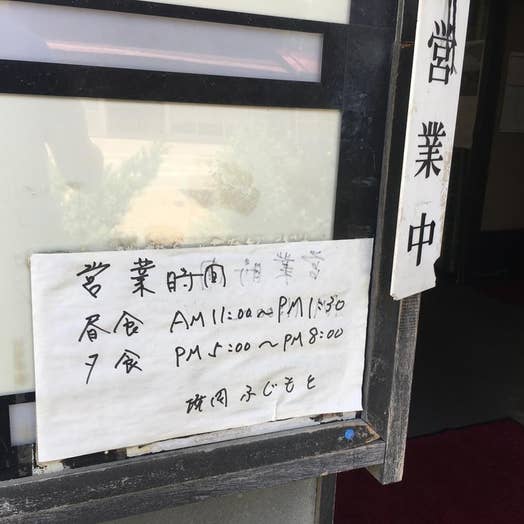 営業中
営業時間
昼食 AM11:00~PM1:30
夕食 PM5:00~PM8:00
焼肉 ふじもと